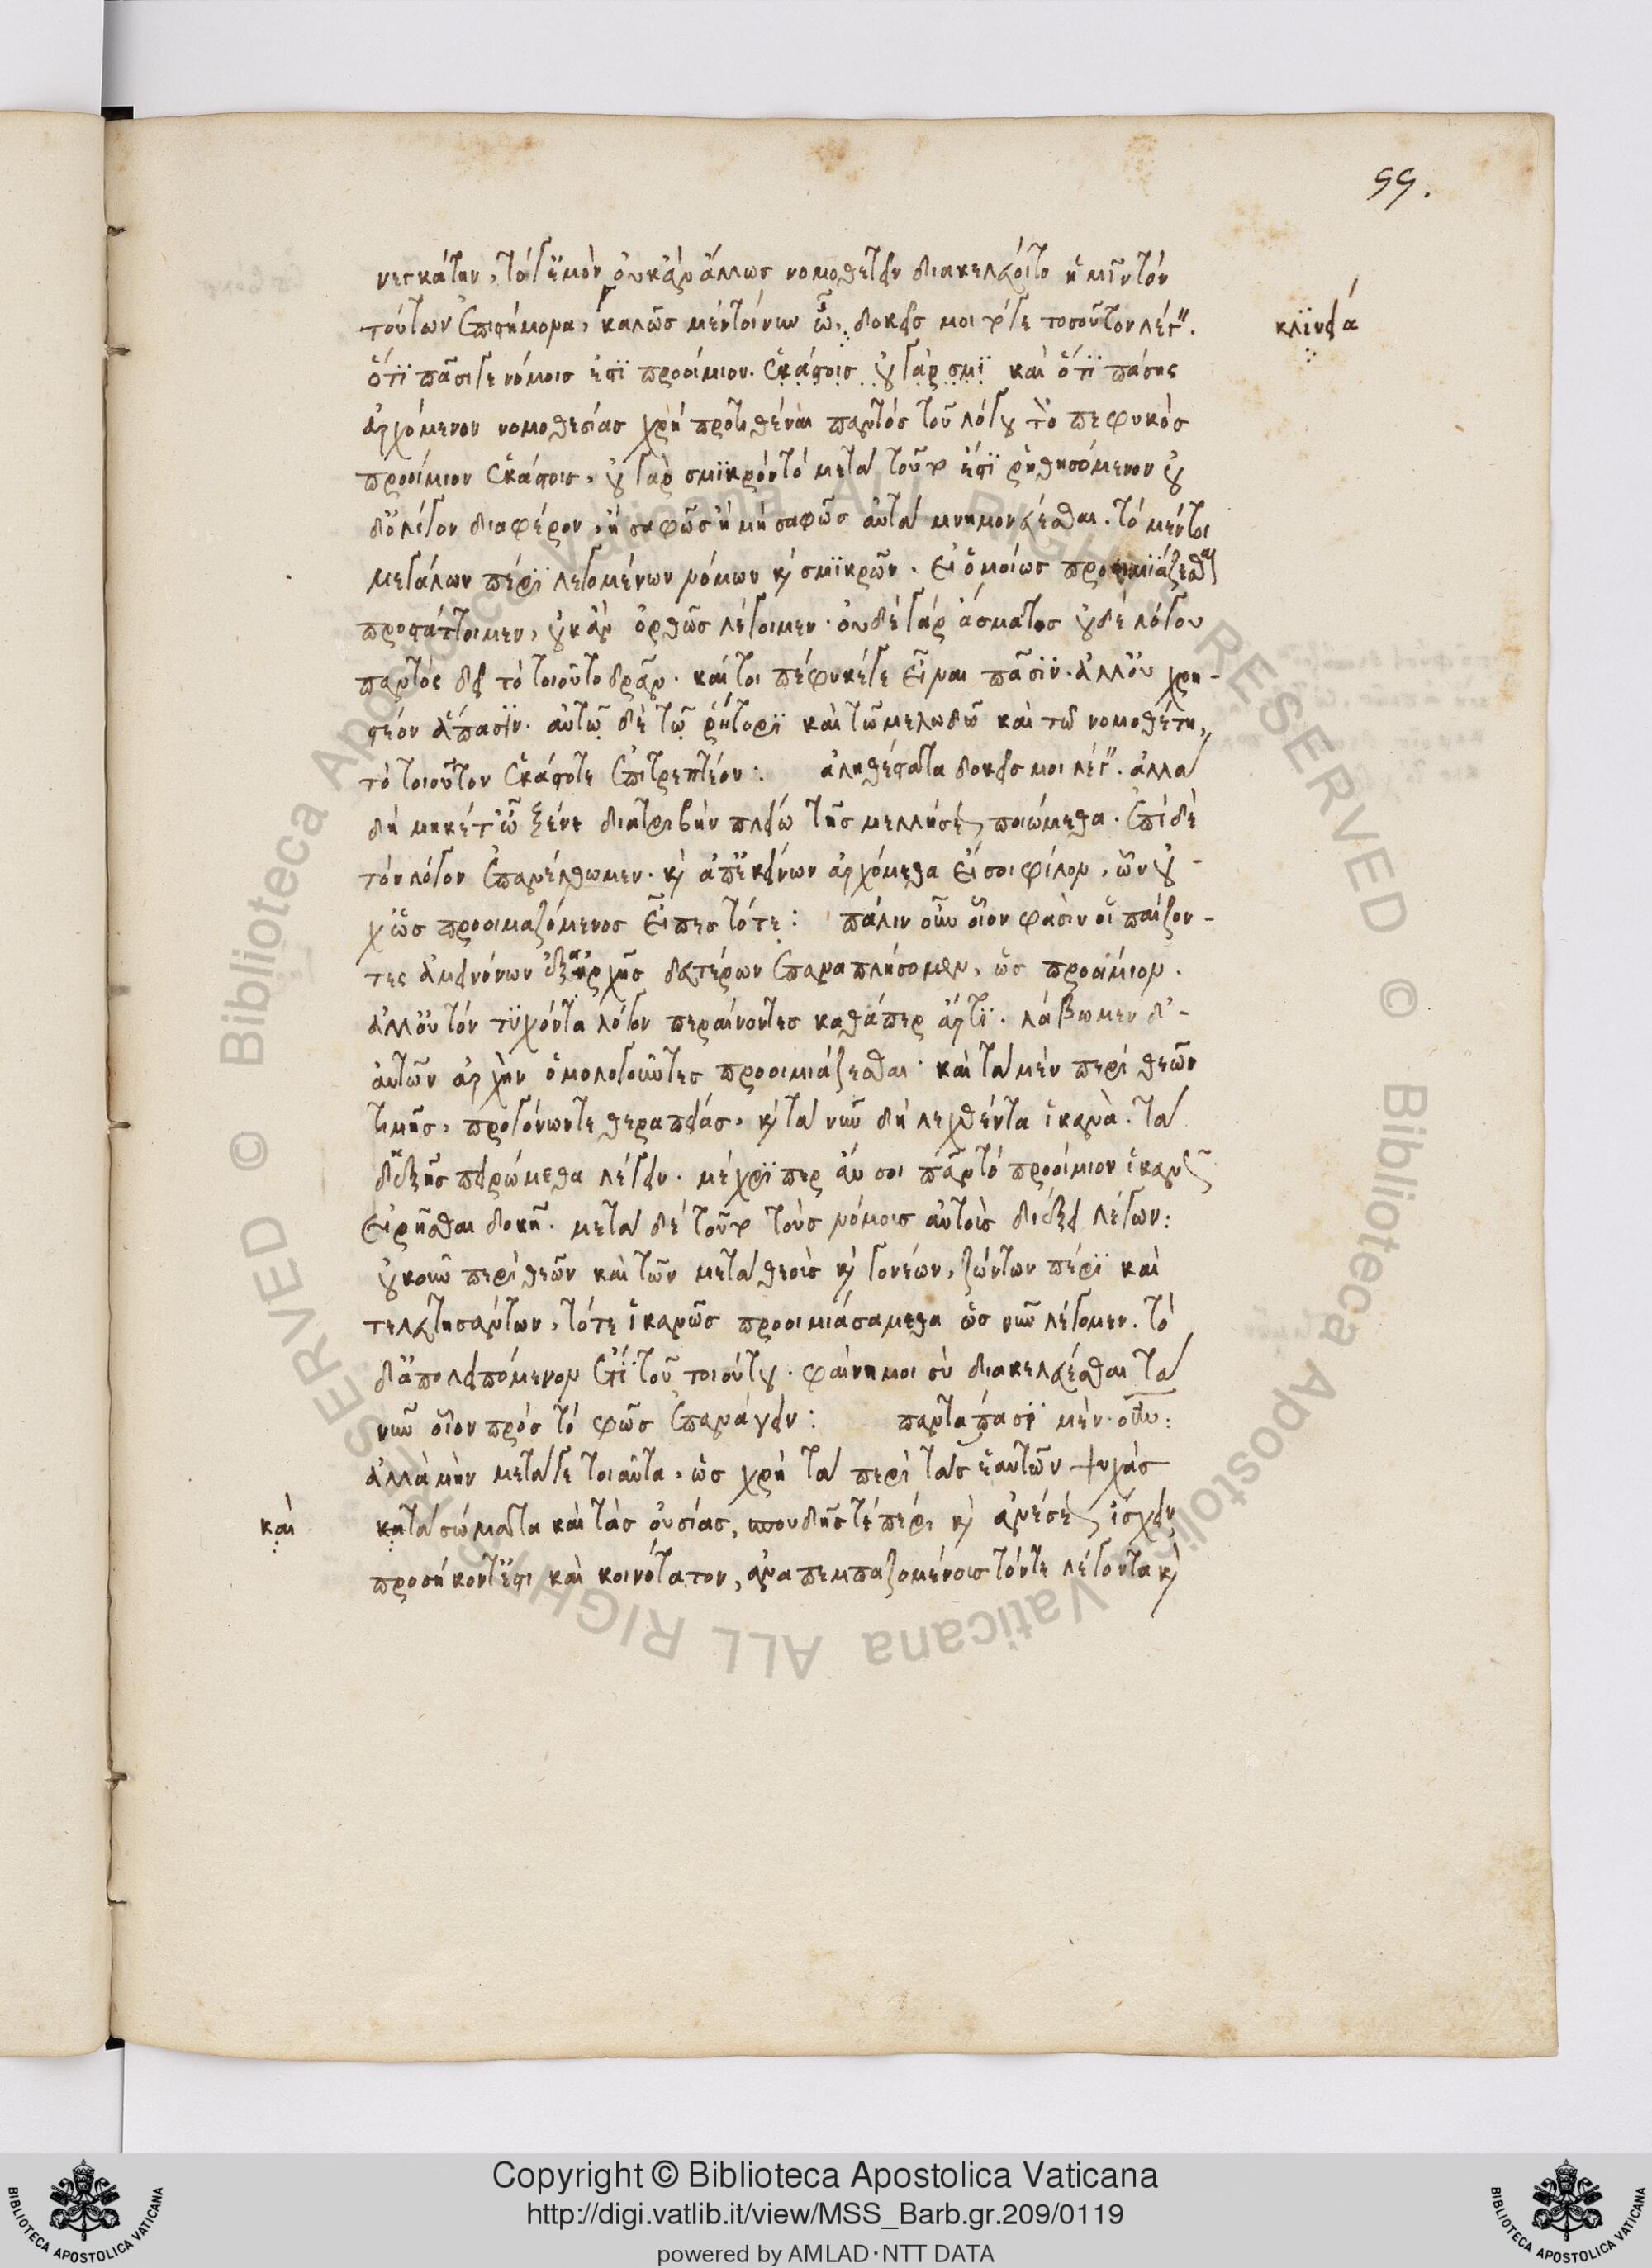 99.
νεσκάτην, τόγ' ἐμὸν οὐκ ἂν ἄλλως νομοθετεῖν διακελεύοιτο ἡμῖν τὸν
τούτων ἐπιστήμονα, καλῶς μέντοι νυν ὦ, δοκεῖς μοι τό γε τοσοῦτον λέγ.
κλϊνεία
ὅτϊ πᾶσι γε νόμοις ἐστϊ προοίμιον. ἑκάστοις οὐ γὰρ σμϊ καὶ ὅτϊ πάσης
ἀρχόμενον νομοθεσίας χρὴ προτιθέναι παντὸς τοῦ λόγου τὸ πεφυκὸς
προοίμιον ἑκάστοις, οὐ γὰρ σμϊκρὸν τὸ μετὰ τοῦτο ἐστϊ ῥηθησόμενον οὐ
δ' ὀλίγον διαφέρον, ἢ σαφῶς ἢ μὴ σαφῶς αὐτὰ μνημονεύεσθαι. τὸ μέντοι
μεγάλων πέρϊ λεγομένων νόμων καὶ σμϊκρῶν. εἰ ὁμοίως προοιμϊάζεσθαι
προστάττοιμεν, οὐκ ἂν ὀρθῶς λέγοιμεν. οὐδὲ γὰρ ἄσματος οὐδὲ λόγου
παντὸς δεῖ τὸ τοιοῦτο δρᾶν. καί τοι πέφυκέ γε εἶναι πᾶσϊν. ἀλλ' οὐ χρη-
στέον ἅπασϊν. αὐτῷ δὲ τῷ ῥήτορϊ καὶ τῶ μελωδῶ καὶ τῶ νομοθέτη,
τὸ τοιοῦτον ἑκάστοτε ἐπιτρεπτέον: ἀληθέστατα δοκεῖς μοι λέγ. ἀλλὰ
δὴ μηκέτ' ὦ ξένε διατριβὴν πλείω τῆς μελλήσεως ποιώμεθα. ἐπὶ δὲ
τὸν λόγον ἐπανέλθωμεν. καὶ ἀπ' ἐκείνων ἀρχόμεθα εἴ σοι φίλον, ὧν οὐ-
χ' ὡς προοιμαζόμενος εἶπες τότε: πάλιν οὖν οἷον φασὶν οἱ παίζον-
τες ἀμεινόνων ἐξ ἀρχῆς δευτέρων ἐπαναπλήσομεν, ὡς προοίμιον.
ἀλλ' οὐ τὸν τϋχόντα λόγον περαίνοντες καθάπερ ἄρτϊ. λάβωμεν δ'-
αὐτῶν ἀρχὴν ὁμολογοῦντες προοιμιάζεσθαι. καὶ τὰ μὲν περὶ θεῶν
τιμῆς, προγόνων τε θεραπείας, καὶ τὰ νῦν δὴ λεχθέντα ἱκανὰ. τὰ
δ' ἑξῆς πειρώμεθα λέγειν. μέχρϊ περ ἄν σοι πᾶν τὸ προοίμιον ἱκανῶς
εἰρῆσθαι δοκῇ. μετὰ δὲ τοῦτο τοὺς νόμοις αὐτοῖς διέξει λέγων:
οὐκοῦν περὶ θεῶν καὶ τῶν μετὰ θεοὶς καὶ γονέων, ζώντων πέρϊ καὶ
τελευτησάντων, τότε ἱκανῶς προοιμιάσαμεθα ὡς νῦν λέγομεν. τὸ
δ' ἀπολειπόμενον ἔτι τοῦ τοιούτου. φαίνη μοι σὺ διακελεύεσθαι τὰ
νῦν οἷον πρὸς τὸ φῶς ἐπανάγειν: παντάπασϊ μὲν οὖν:
ἀλλὰ μὴν μετά γε τοιαῦτα, ὡς χρὴ τὰ περὶ τὰς ἑαυτῶν ψυχὰς
καὶ
κατὰ σώματα καὶ τὰς οὐσίας, σπουδῆς τέ πέρι καὶ ἀνέσεως ἴσχειν
προσήκοντ' ἐστι καὶ κοινότατον, ἀναπεμπαζομένοις τόν τε λέγοντα καὶ
Copyright © Biblioteca Apostolica Vaticana
http://digi.vatlib.it/view/MSS_Barb.gr.209/0119
powered by AMLAD·NTT DATA